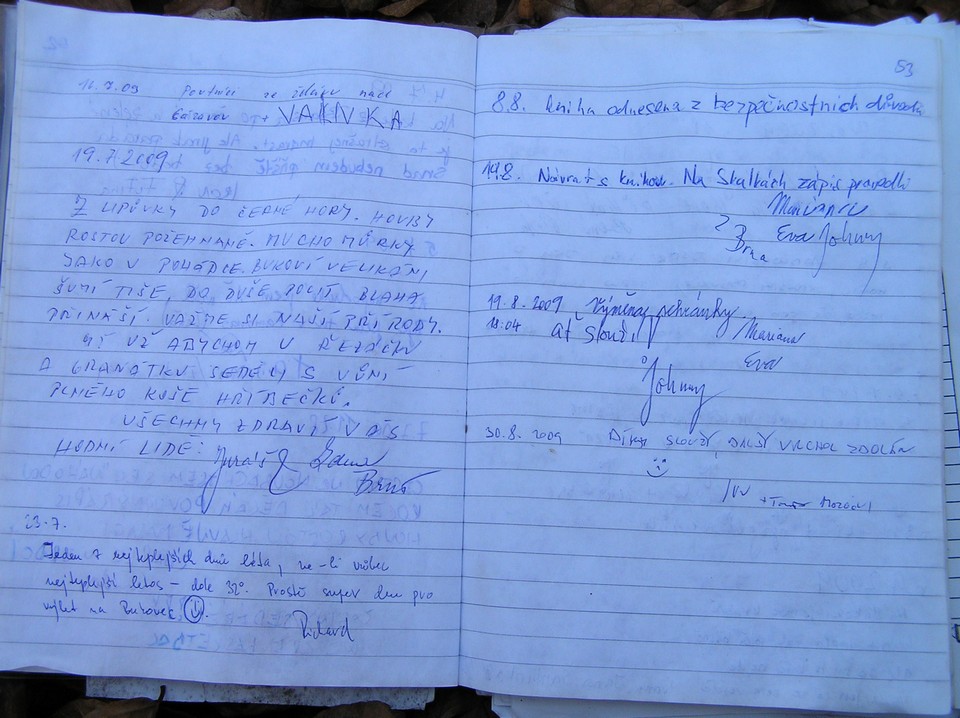 16.7.09
VAŇKA
19.7.2009
Z LIPŮVKY DO ČERNÉ HORY. HOUBY
ROSTOU POŽEHNANĚ. MUCHOMŮRKY
JAKO V POHÁDCE. BUKOVÍ VELIKÁNI
ŠUMÍ TIŠE, DO DUŠE POCIT BLAHA
PŘINÁŠÍ. VAŽME SI NAŠÍ PŘÍRODY.
UŽ ABYCHOM V
A GRANÁTKU SEDĚLI S VŮNÍ
PLNÉHO KOŠE HŘÍBEČKŮ.
VŠECHNY ZDRAVÍ, VÁS
HODNÍ LIDÉ:
Brno
23.7.
Jeden z nejteplejších dnů léta, ne-li vůbec
nejteplejší letos – dole 32°. Prostě super den pro
výlet na Bukovec
Richard
53
8.8. kniha odnesena z bezpečnostních důvodů
14.8. Návrat s knihou. Na Skalkách zápis provedli
Z Brna Eva Johnny
19.8.2009 Výměna schránky.
18:04 ať slouží Mariana
Eva
Johnny
30.8.2009 Díky slouží, další vrchol zdolán